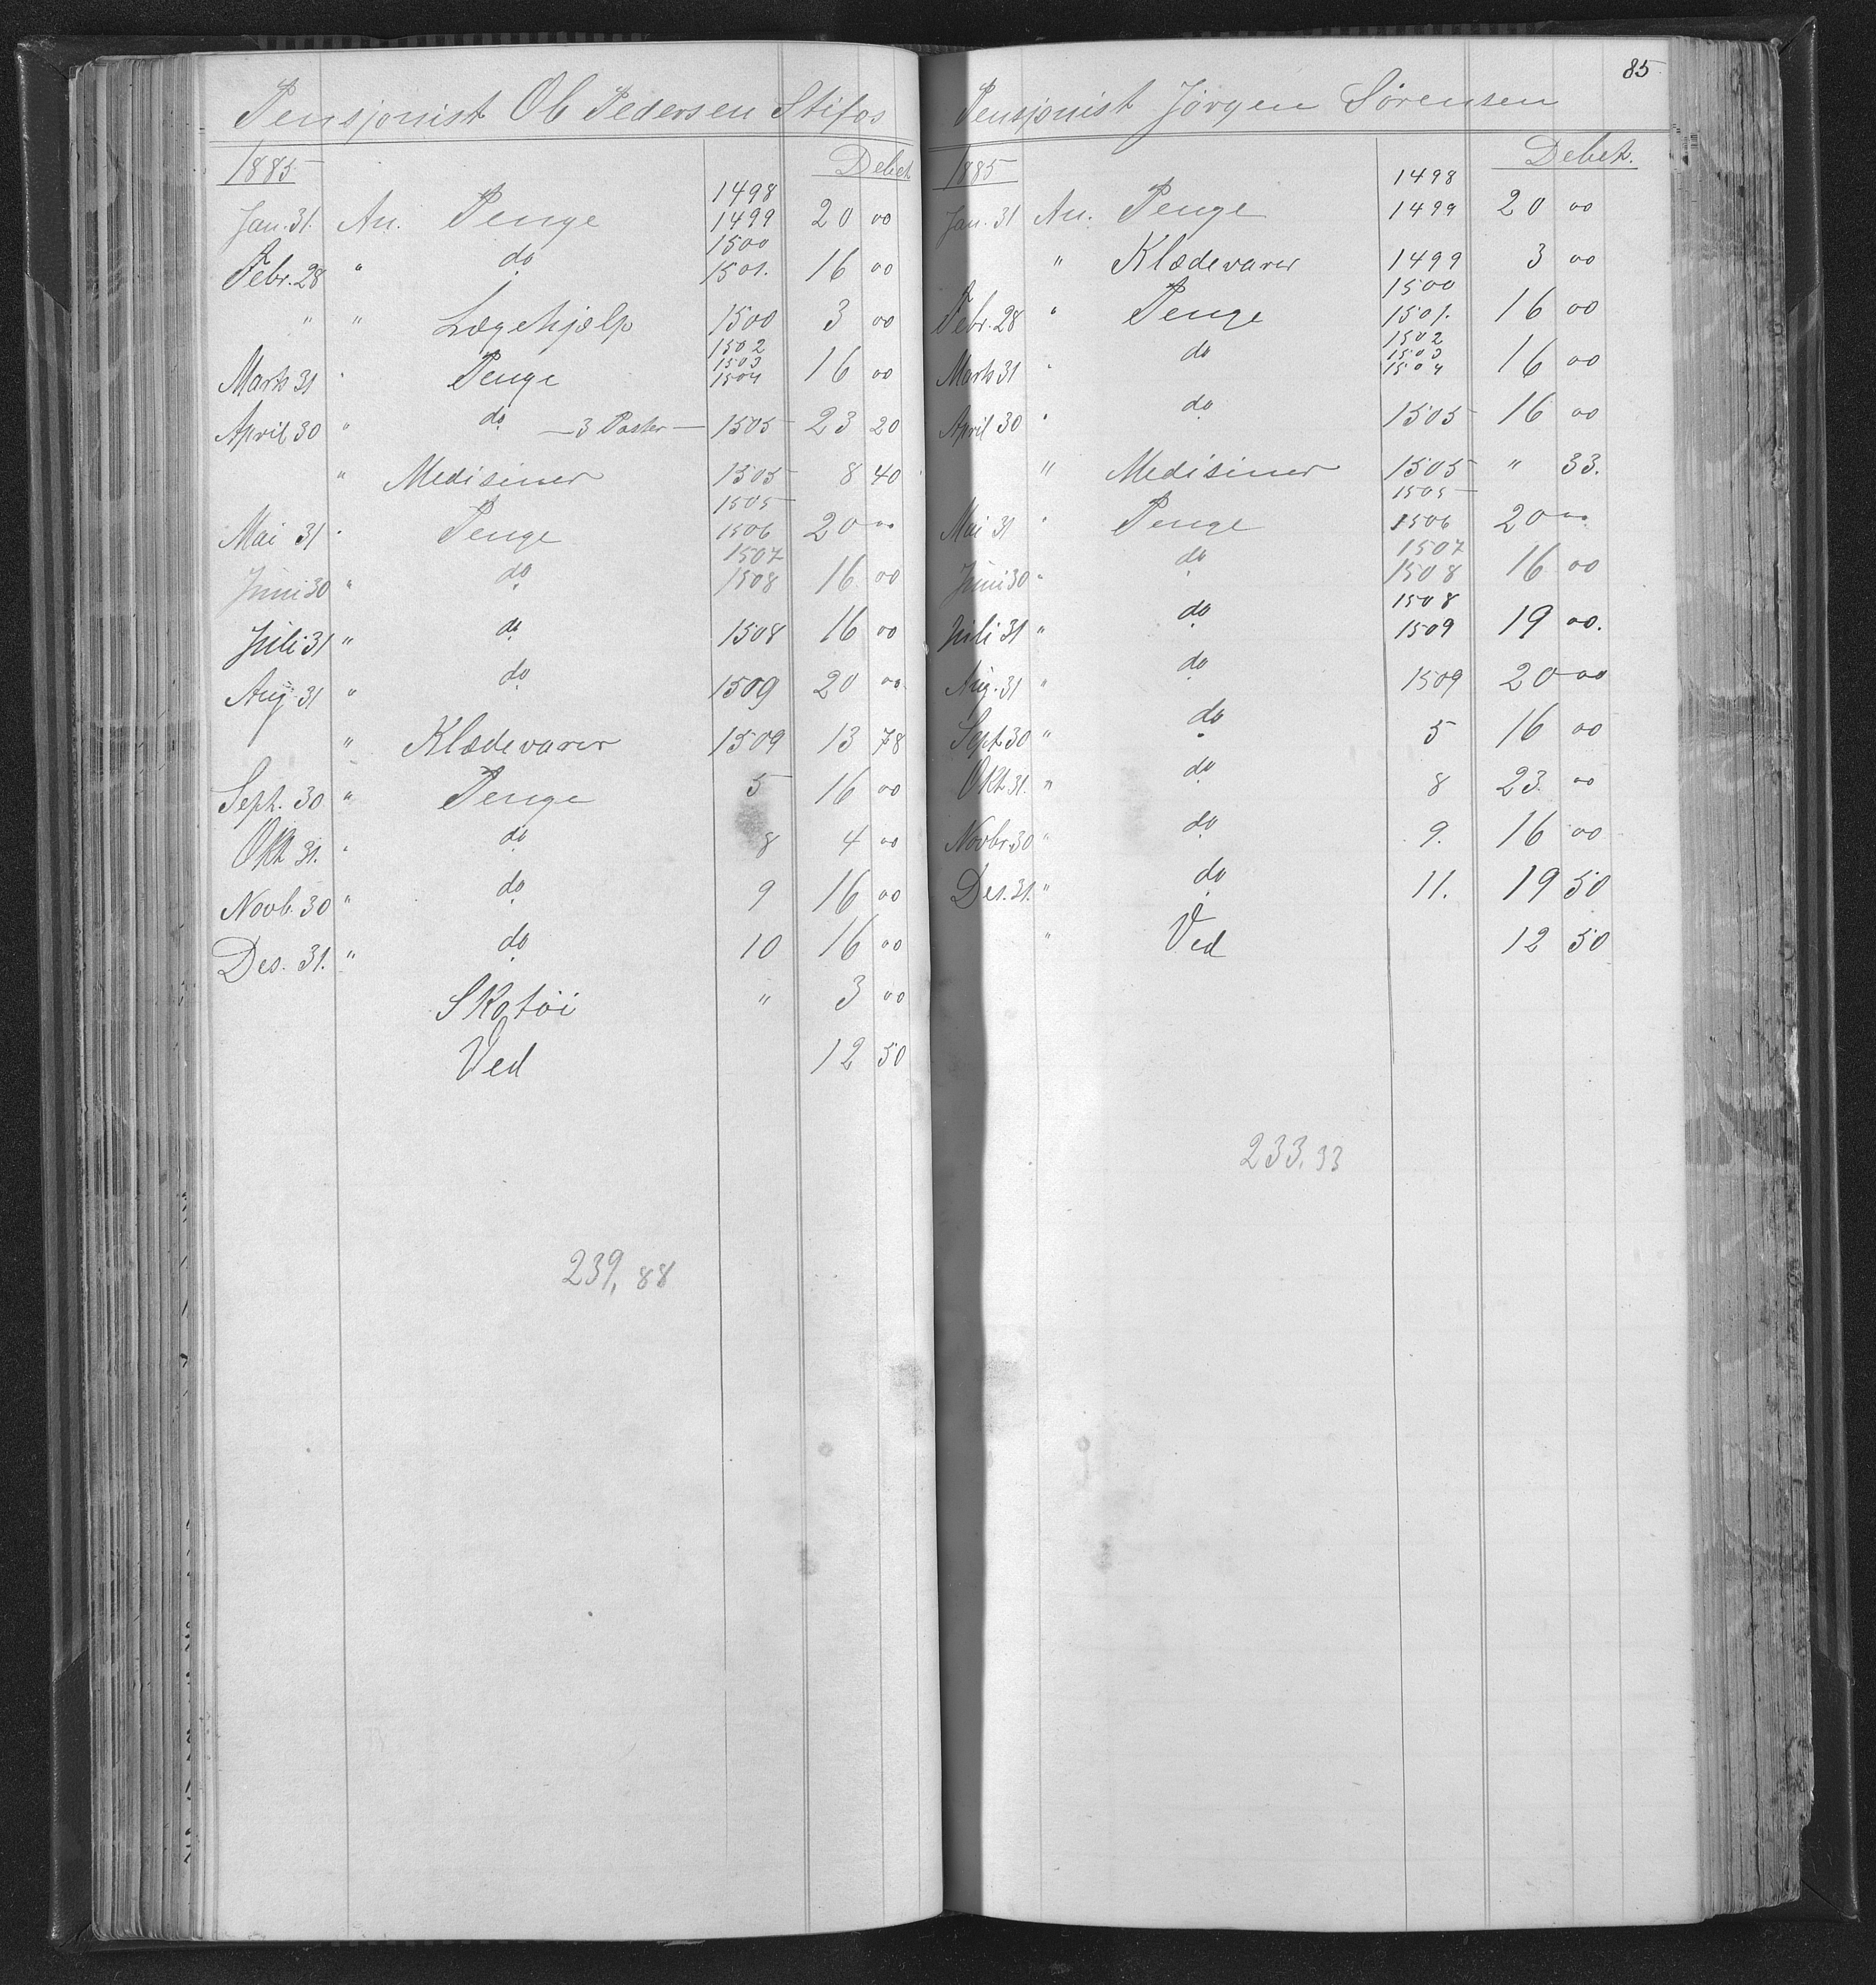 Pensjonist Ol. Pedersen Stifos
1885 Debet
1498
Jan. 31. An. Penge 1499 20 00
1500
Febr. 28 " do 1501. 16 00
" " Lægehjælp 1500 3 00
1502
1503
Marts 31 " Penge 1504 16 00
April 30 " do — 3 Poster — 1505 23 20
" Medisiner 1505 8 40
1505
Mai 31 " Penge 1506 20 00
1507
Juni 30 " do 1508 16 00
Juli 31 " do 1508 16 00
Aug. 31 " do 1509 20 00
" Klædevarer 1509 13 78
Sept. 30 " Penge 5 16 00
Okt 31. " do 8 4 00
Novb. 30 " do 9 16 00
Des. 31. " do 10 16 00
Skotøi " 3 00
Ved 12 50
239,88
85
Pensjonist Jørgen Sørensen
1885 Debet.
1498
Jan. 31 An. Penge 1499 20 00
" Klædevarer 1499 3 00
1500
Febr. 28 " Penge 1501. 16 00
1502
1503
Marts 31 " do 1504 16 00
April 30 " do 1505 16 00
" Medisiner 1505 " 33.
1505
Mai 31 " Penge 1506 20 00
1507
Juni 30 " do 1508 16 00
1508
Juli 31 " do 1509 19 00.
Aug. 31 " do 1509 20 00
Sept 30 " do 5 16 00
Okt 31. " do 8 23. 00
Novbr. 30 " do 9. 16 00
Des. 31. " do 11. 19 50
" Ved 12 50
233,33